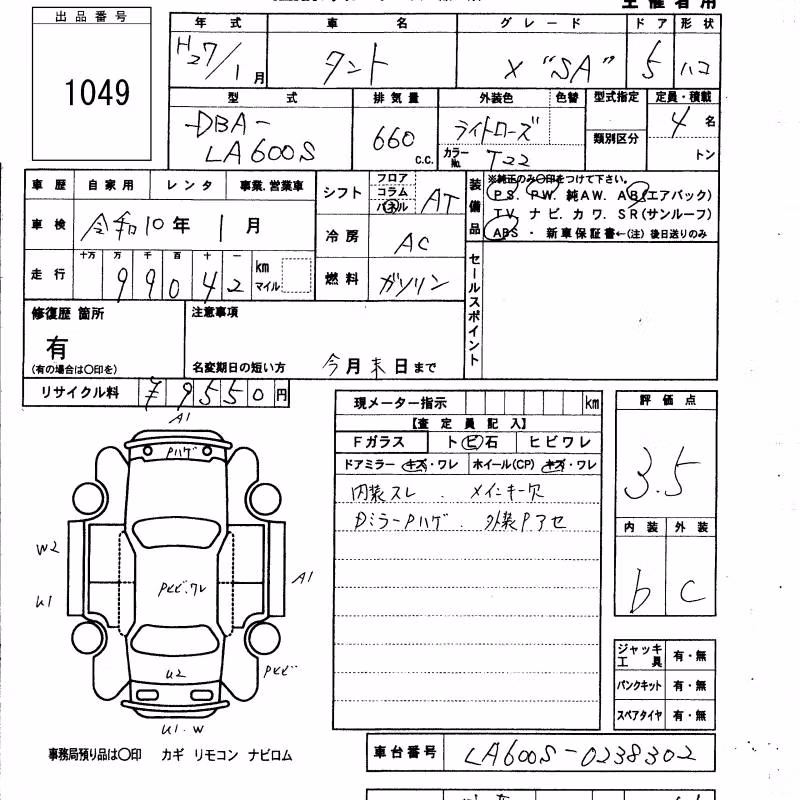 主催者用
出品番号
1049
年式 車名 グレード ドア 形状
H27/1月 タント X "SA" 5 ハコ
型式 排気量 外装色 色替 型式指定 定員・積載
DBA-LA600S 660 C.C. ライトローズ 類別区分 4名
カラーNo. T22 トン
車歴 自家用 レンタ 事業.営業車
シフト フロア コラム パネル AT
装備品 ※純正のみ○印をつけて下さい。
PS. PW. 純AW. AB(エアバック)
TV. ナビ. カワ. SR(サンルーフ)
ABS ・ 新車保証書←(注) 後日送りのみ
車検 令和10年 1月
冷房 AC
走行 十万 万 千 百 十 一 km マイル
99042
燃料 ガソリン
セールスポイント
修復歴 箇所 注意事項
有
(有の場合は○印を) 名変期日の短い方 今月末日まで
リサイクル料 ¥9550円
現メーター指示 km
【査定員記入】
Fガラス トビ石 ヒビワレ
ドアミラー キズ・ワレ ホイール(CP) キズ・ワレ
内装スレ . メインキー欠
Dミラー Pハゲ . 外装Pアセ
評価点
3.5
内装 外装
b C
A1
Pハゲ
W2
U1
Pヒビ.ワレ
A1
U2
Pヒビ
U1.W
ジャッキ工具 有・無
パンクキット 有・無
スペアタイヤ 有・無
事務局預り品は○印 カギ リモコン ナビロム
車台番号 LA600S-0238302